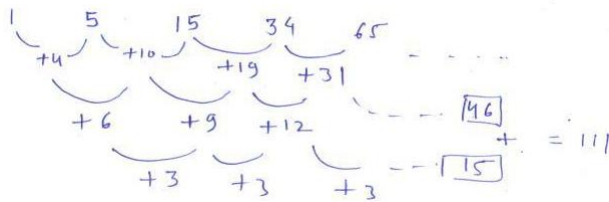 1 5 15 34 65 - - - - -
+4 +10 +19 +31
+6 +9 +12 - - - 46
+ = 111
+3 +3 +3 - - - 15